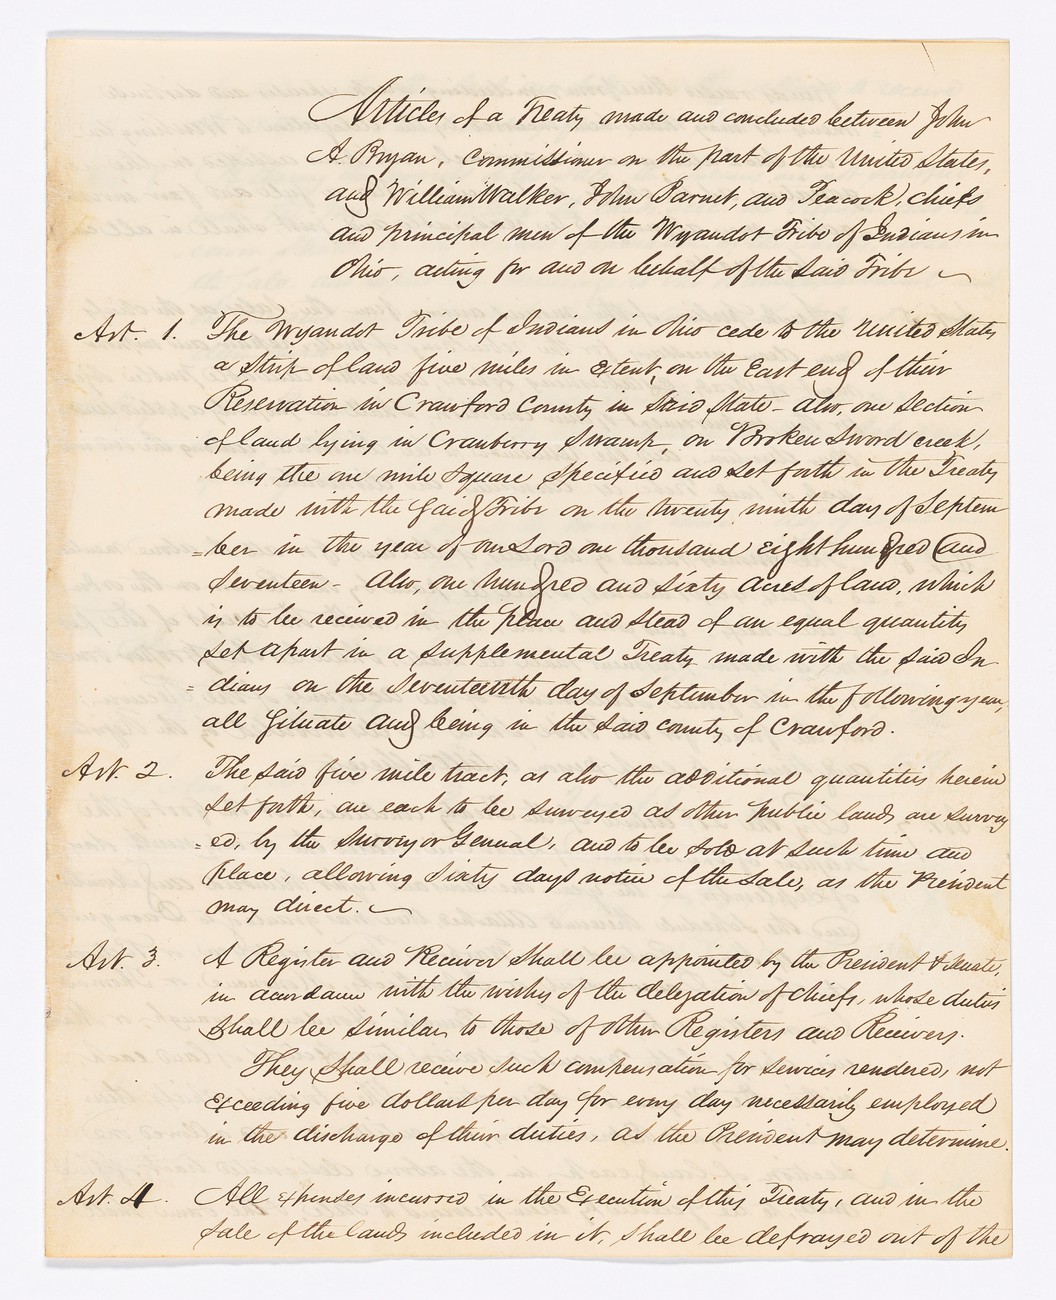 Articles of a Treaty made and concluded between John
A. Bryan, Commissioner on the part of the United States,
and William Walker, John Barnet, and Peacock, chiefs
and principal men of the Wyandot Tribe of Indians in
Ohio, acting for and on behalf of the said Tribe
Art. 1. The Wyandot Tribe of Indians in Ohio cede to the United States
a strip of land five miles in extent, on the East end of their
Reservation in Crawford County in said State - also, one section
of land lying in Cranberry Swamp, on Broken Sword creek,
being the one mile square specified and set forth in the Treaty
made with the said Tribe on the twenty ninth day of Septem
=ber in the year of our Lord one thousand eight hundred and
Seventeen - Also, one hundred and sixty acres of land, which
is to be received in the place and stead of an equal quantity
set apart in a supplemental Treaty made with the said In
=dians on the Seventeenth day of September in the following year,
all situate and being in the said county of Crawford.
Art. 2. The said five mile tract, as also the additional quantities herein
set forth, are each to be surveyed as other public lands are survey
=ed, by the Surveyor General, and to be sold at such time and
place, allowing sixty days notice of the sale, as the President
may direct.
Art. 3. A Register and Receiver shall be appointed by the President & Senate,
in accordance with the wishes of the delegation of chiefs, whose duties
shall be similar to those of other Registers and Receivers.
They shall receive such compensation for services rendered, not
exceeding five dollars per day for every day necessarily employed
in the discharge of their duties, as the President may determine.
Art. 4. All expenses incurred in the Execution of this Treaty, and in the
sale of the lands included in it, shall be defrayed out of the